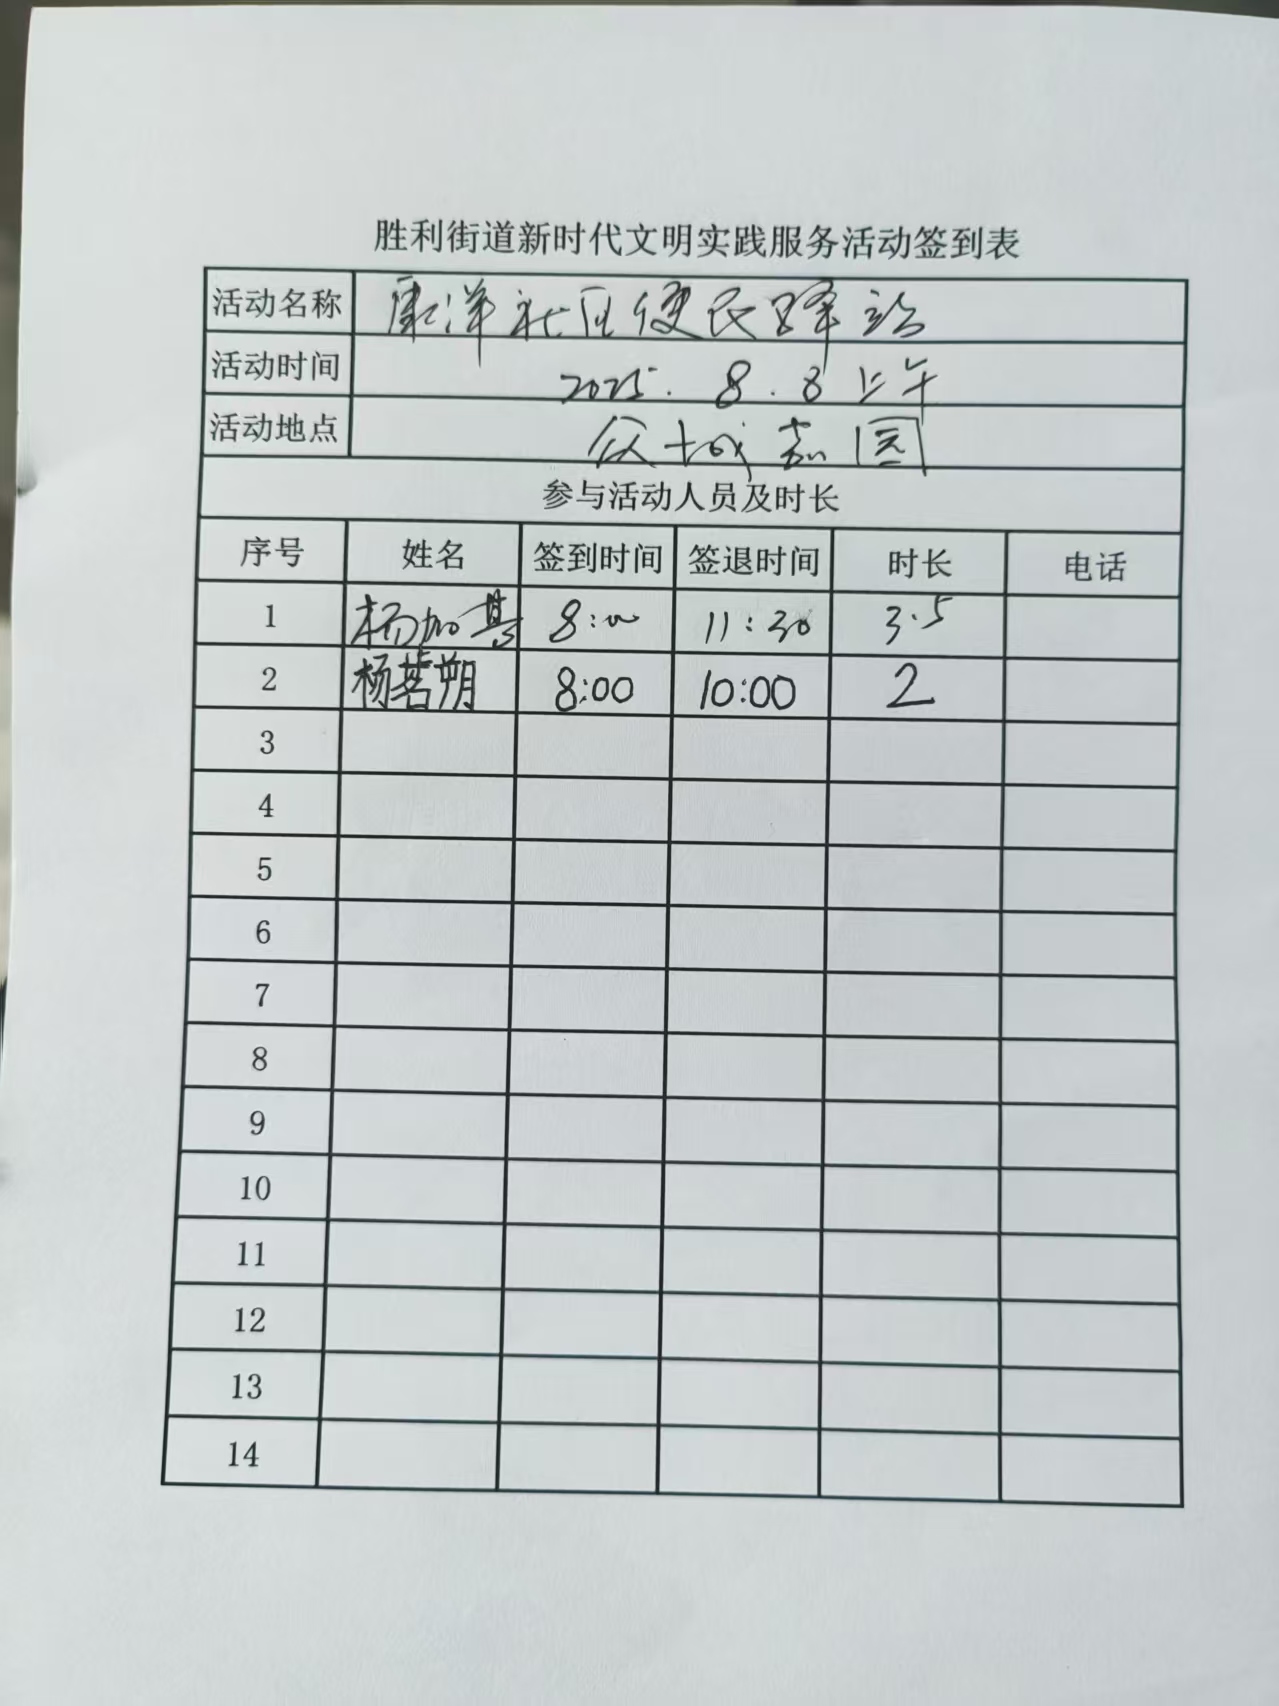 胜利街道新时代文明实践服务活动签到表
活动名称 康洋社区便民驿站
活动时间 2025.8.8上午
活动地点 众城嘉园
参与活动人员及时长
序号 姓名 签到时间 签退时间 时长 电话
1 杨加 8:00 11:30 3.5
2 杨茗朔 8:00 10:00 2
3
4
5
6
7
8
9
10
11
12
13
14